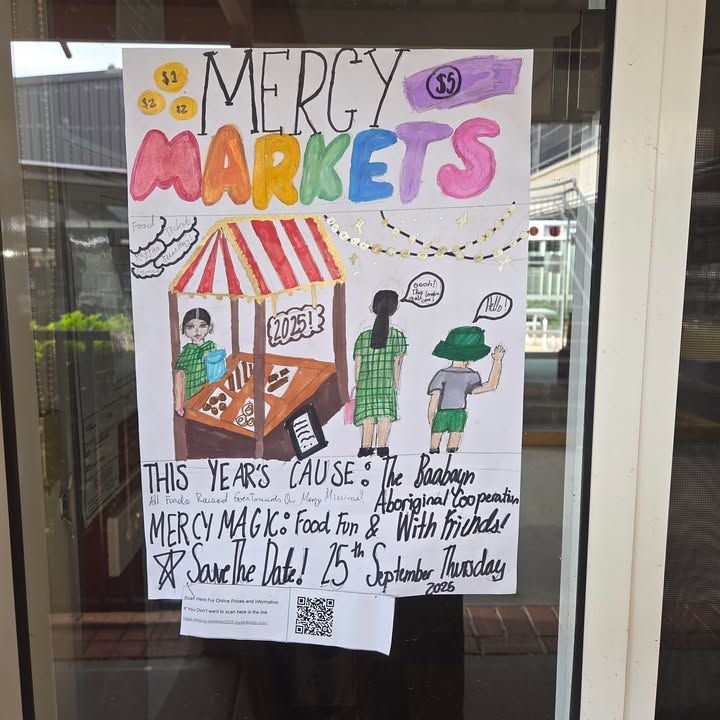 $1
$2 $2
MERCY
$5
MARKETS
Food
2025!
Oooh!
This
stall looks
cool!
Hello!
THIS YEAR'S CAUSE: The Baabayn
Aboriginal Cooperation
All Funds Raised Goes Towards Our Mercy Missions!
MERCY MAGIC: Food Fun & With Friends!
Save The Date! 25th September Thursday
2025
Scan Here For Online Prices and information
If You Don't want to scan here is the link